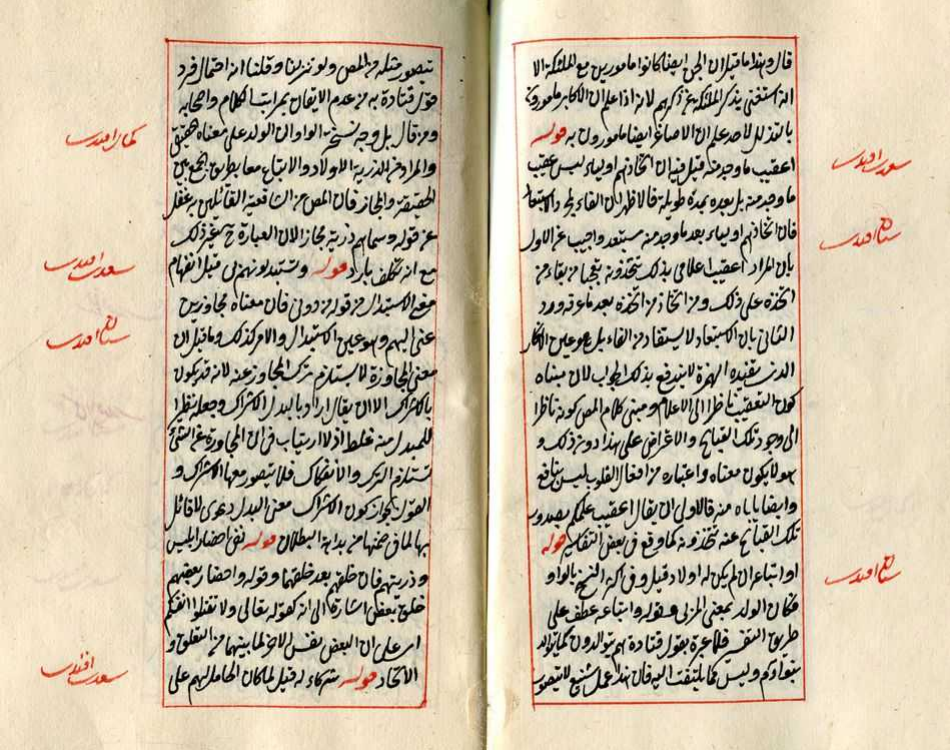 قال وهذا ما قيل ان الجن ايضا كانوا مأمورين مع الملئكة الا
انه استغنى بذكر الملئكة عن ذكرهم لانه اذا علم ان الاكابر مأمورون
بالتذلل لاحد علم ان الاصاغر ايضا مأمورون به قوله
اعقيب ما وجد منه قيل فيه ان اتخاذهم اولياء ليس عقيب
ما وجد منه بل بعده بمدة طويلة فالاظهر ان الفاء لمجرد الاستبعاد
فان اتخاذهم اولياء بعد ما وجد منه مستبعد واجيب عن الاول
بان المراد اعقيب اعلامي بذلك تتخذونه تعجبا من بقاء من
اتخذه على ذلك ومن اتخاذ من اتخذه بعد ما عرفه ورد
الثاني بان الاستبعاد لا يستفاد من الفاء بل هو عين الانكار
الذي تفيده الهمزة لا يندفع بذلك الجواب لان مبناه
كون التعقيب ناظرا الى الاعلام ومبنى كلام المص كونه ناظرا
الى وجود تلك القبائح والاعتراض على هذا دون ذلك و
هو لا يكون معناه واعتباره من افعال القلوب ليس بنافع
وايضا ياباه منه فالاولى ان يقال اعقيب علمكم بصدور
تلك القبائح عنه تتخذونه كما وقع في بعض التفاسير قوله
او اتباعه ان لم يكن له اولاد قيل وفي اكثر النسخ بالواو
فكان الولد بمعنى المربى وقوله واتباعه عطف على
طريق التفسير فلا عبرة بقول قتادة هم يتوالدون كما يتوالد
بنو آدم وليس كما يلتفت اليه فان هذا عمل شنيع لا يتصور
سعدى افندى
سنان افندى
سنان افندى
يتصور مثله من المص ولو تنزلنا وقلنا انه احتمال فرد
قول قتادة به من عدم الايقان بمراتب الكلام واصحابه
ومن قال بل وجه نسخة الواو ان الولد على معناه الحقيقي
والمراد من الذرية الاولاد والاتباع معا بطريق الجمع بين
الحقيقة والمجاز فان المص من الشافعية القائلين به غفل
عن قوله وسماهم ذرية مجازا لان العبارة ح تغير ذلك
مع انه تكلف بارد قوله وتستبدلونهم بي قيل انفهام
معنى الاستبدال من قوله من دوني فان معناه مجاوزين
عني اليهم وهو عين الاستبدال والامر كذلك وما قيل ان
معنى المجاوزة لا يستلزم ترك المجاوز عنه لانه قد يكون
بالاشراك الا ان يقال اراد بالبدل الاشراك وجعله نظرا
للمبدل منه غلط اذ لا ارتياب في ان المجاوزة عن الشيء
تستلزم الترك والانفكاك فلا يتصور معها الاشراك و
القول بجواز كون الاشراك معنى البدل دعوى لا قائل
بها لما في ضمنها من بداية البطلان قوله نفي احضار ابليس
وذريتهم فان خلقهم بعد خلقهما وقوله واحضار بعضهم
خلق بعض اشارة الى انه كقوله تعالى ولا تقتلوا انفسكم
امر على ان البعض نفس الاخر لما بينهما من التعلق و
الاتحاد قوله شركاء له قيل لما كان الحامل لهم على
كمال افندى
سعدى افندى
سنان افندى
سعدى افندى